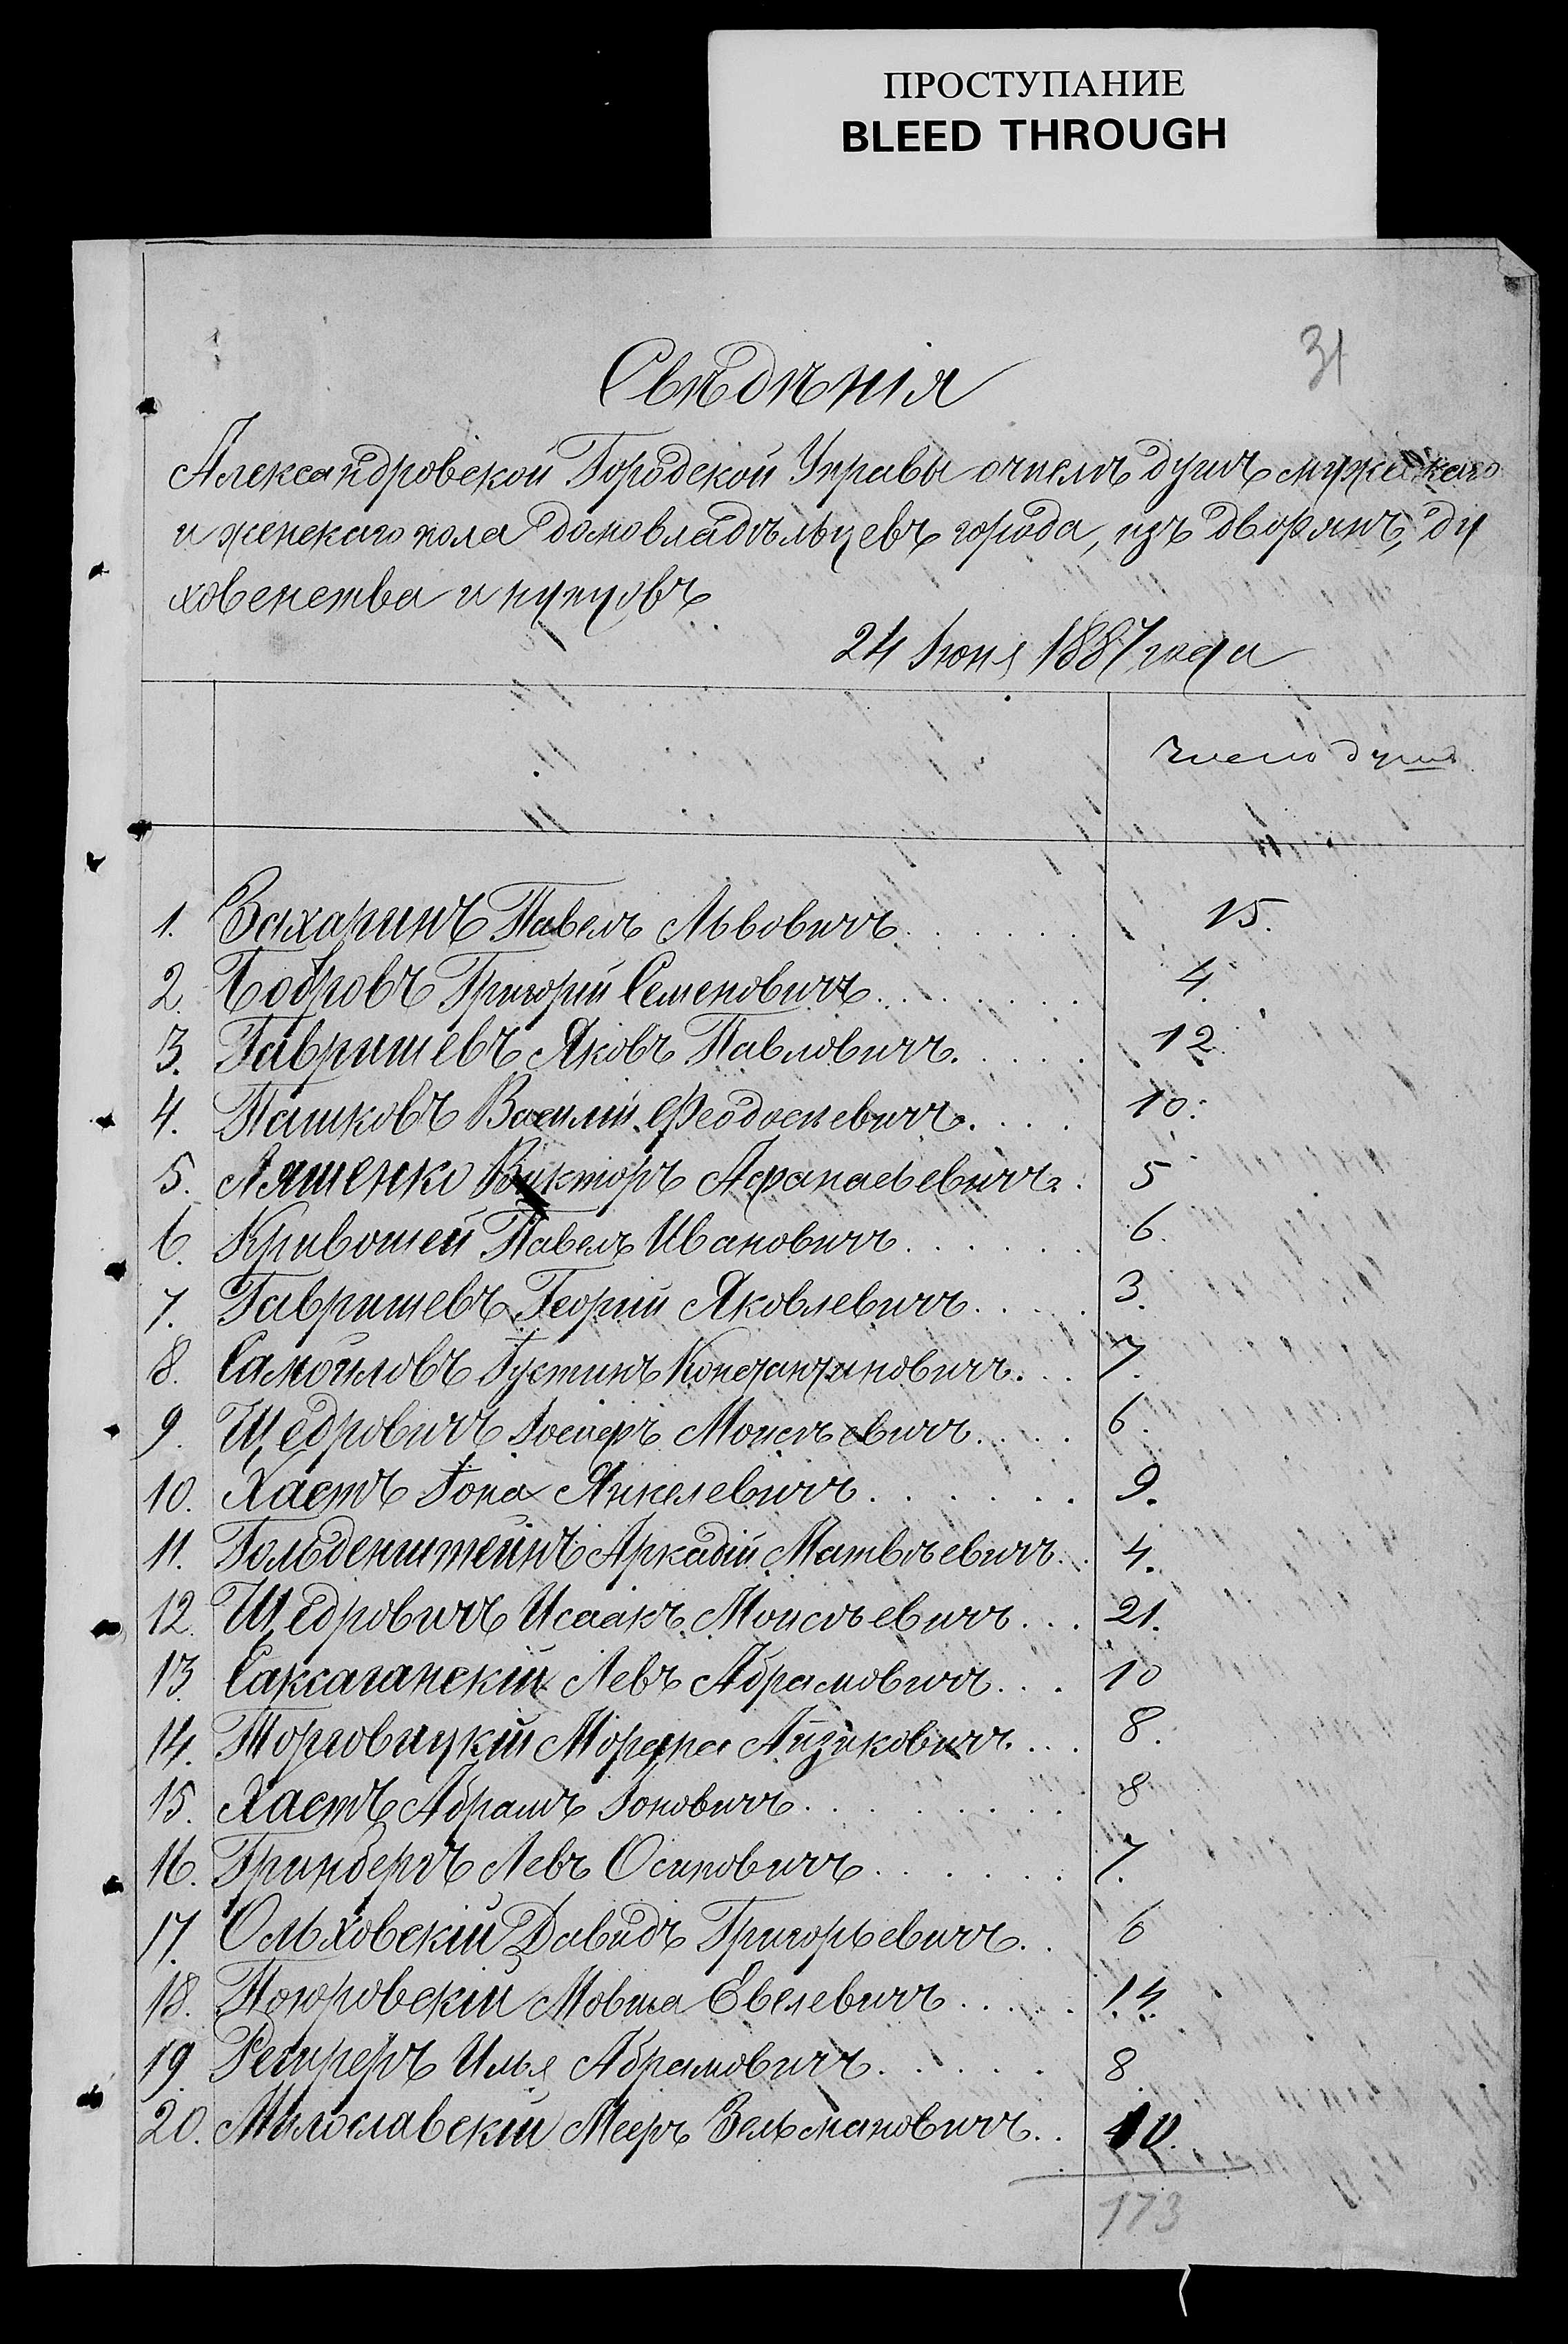 ПРОСТУПАНИЕ
BLEED THROUGH
31
Свѣдѣнія
Александровской Городской Управы о числѣ душъ мужескаго
и женскаго пола домовладѣльцевъ города, изъ дворянъ, ду
ховенства и купцовъ.
24 Іюня 1887 года
Число душъ
1. Захаринъ Павелъ Львовичъ 15.
2. Бобровъ Григорій Семеновичъ 4.
3. Гавришевъ Яковъ Павловичъ 12.
4. Пашковъ Василій Феодосіевичъ 10.
5. Ляшенко Викторъ Афанасьевичъ 5
6. Кривошей Павелъ Ивановичъ 6.
7. Гавришевъ Георгій Яковлевичъ 3.
8. Самойловъ Іустинъ Константиновичъ 7.
9. Щедровичъ Іосифъ Моисѣевичъ 6.
10. Хастъ Іона Янкелевичъ 9.
11. Гольденштейнъ Аркадій Матвѣевичъ 4.
12. Щедровичъ Исаакъ Моисѣевичъ 21.
13. Саксаганскій Левъ Абрамовичъ 10
14. Торговицкій Мордха Айзиковичъ 8.
15. Хастъ Абрамъ Іоновичъ 8
16. Гринбергъ Левъ Осиповичъ 7.
17. Ольховскій Давидъ Григорьевичъ 6
18. Поюровскій Мовша Евелевичъ 14.
19. Рейхеръ Илья Абрамовичъ 8.
20. Милославскій Мееръ Зельмановичъ 10.
173